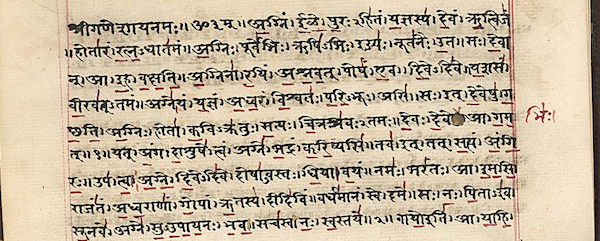 श्रीगणेशायनमः॥ ॐ३म्॥ अग्निं। ईळे। पुरःऽहितं। यज्ञस्य। देवं। ऋत्विजं
।होतारं। रत्नऽधातमं। अग्निः। पूर्वेभिः। ऋषिऽभिः। ईड्यः। नूतनैः। उत। सः। देवा
न्। आ। इह। वक्षति। अग्निना। रयिं। अश्नवत्। पोषं। एव। दिवेऽदिवे। यशसं
वीरवत्ऽतमं। अग्ने। यं। यज्ञं। अध्वरं। विश्वतः। परिऽभूः। असि। सः। इत्। देवेषु। ग
छति। अग्निः। होता। कविऽक्रतुः। सत्यः। चित्रश्रवःऽतमः। देवः। देवे। आ। गम
भिः।
त्॥१॥ यत्। अंग। दाशुषे। त्वं। अग्ने। भद्रं। करिष्यसि। तव। इत्। तत्। सत्यं। अंगि
रः। उप। त्वा। अग्ने। दिवेऽदिवे। दोषाऽवस्तः। धिया। वयं। नमः। भरंतः। आ। इमसि
राजंतं। अध्वराणां। गोपां। ऋतस्य। दीदिविं। वर्धमानं। स्वे। दमे। सः। नः। पिताऽइव
सूनवे। अग्ने। सुऽउपायनः। भव। सचस्व। नः। स्वस्तये॥२॥ वायो इति। आ। याहि।